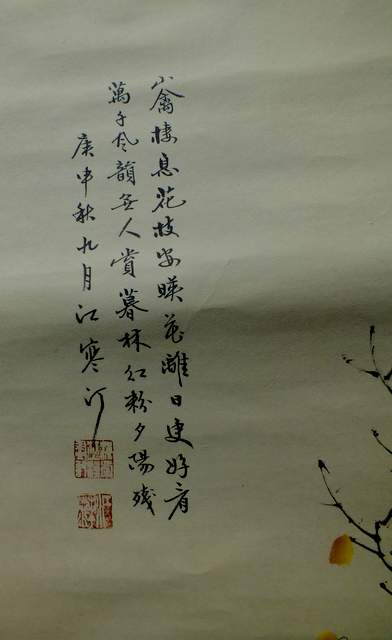 小禽棲息花枝安暎離日更好看
萬千風韻無人賞暮林紅粉夕陽殘
庚申秋九月江寒汀